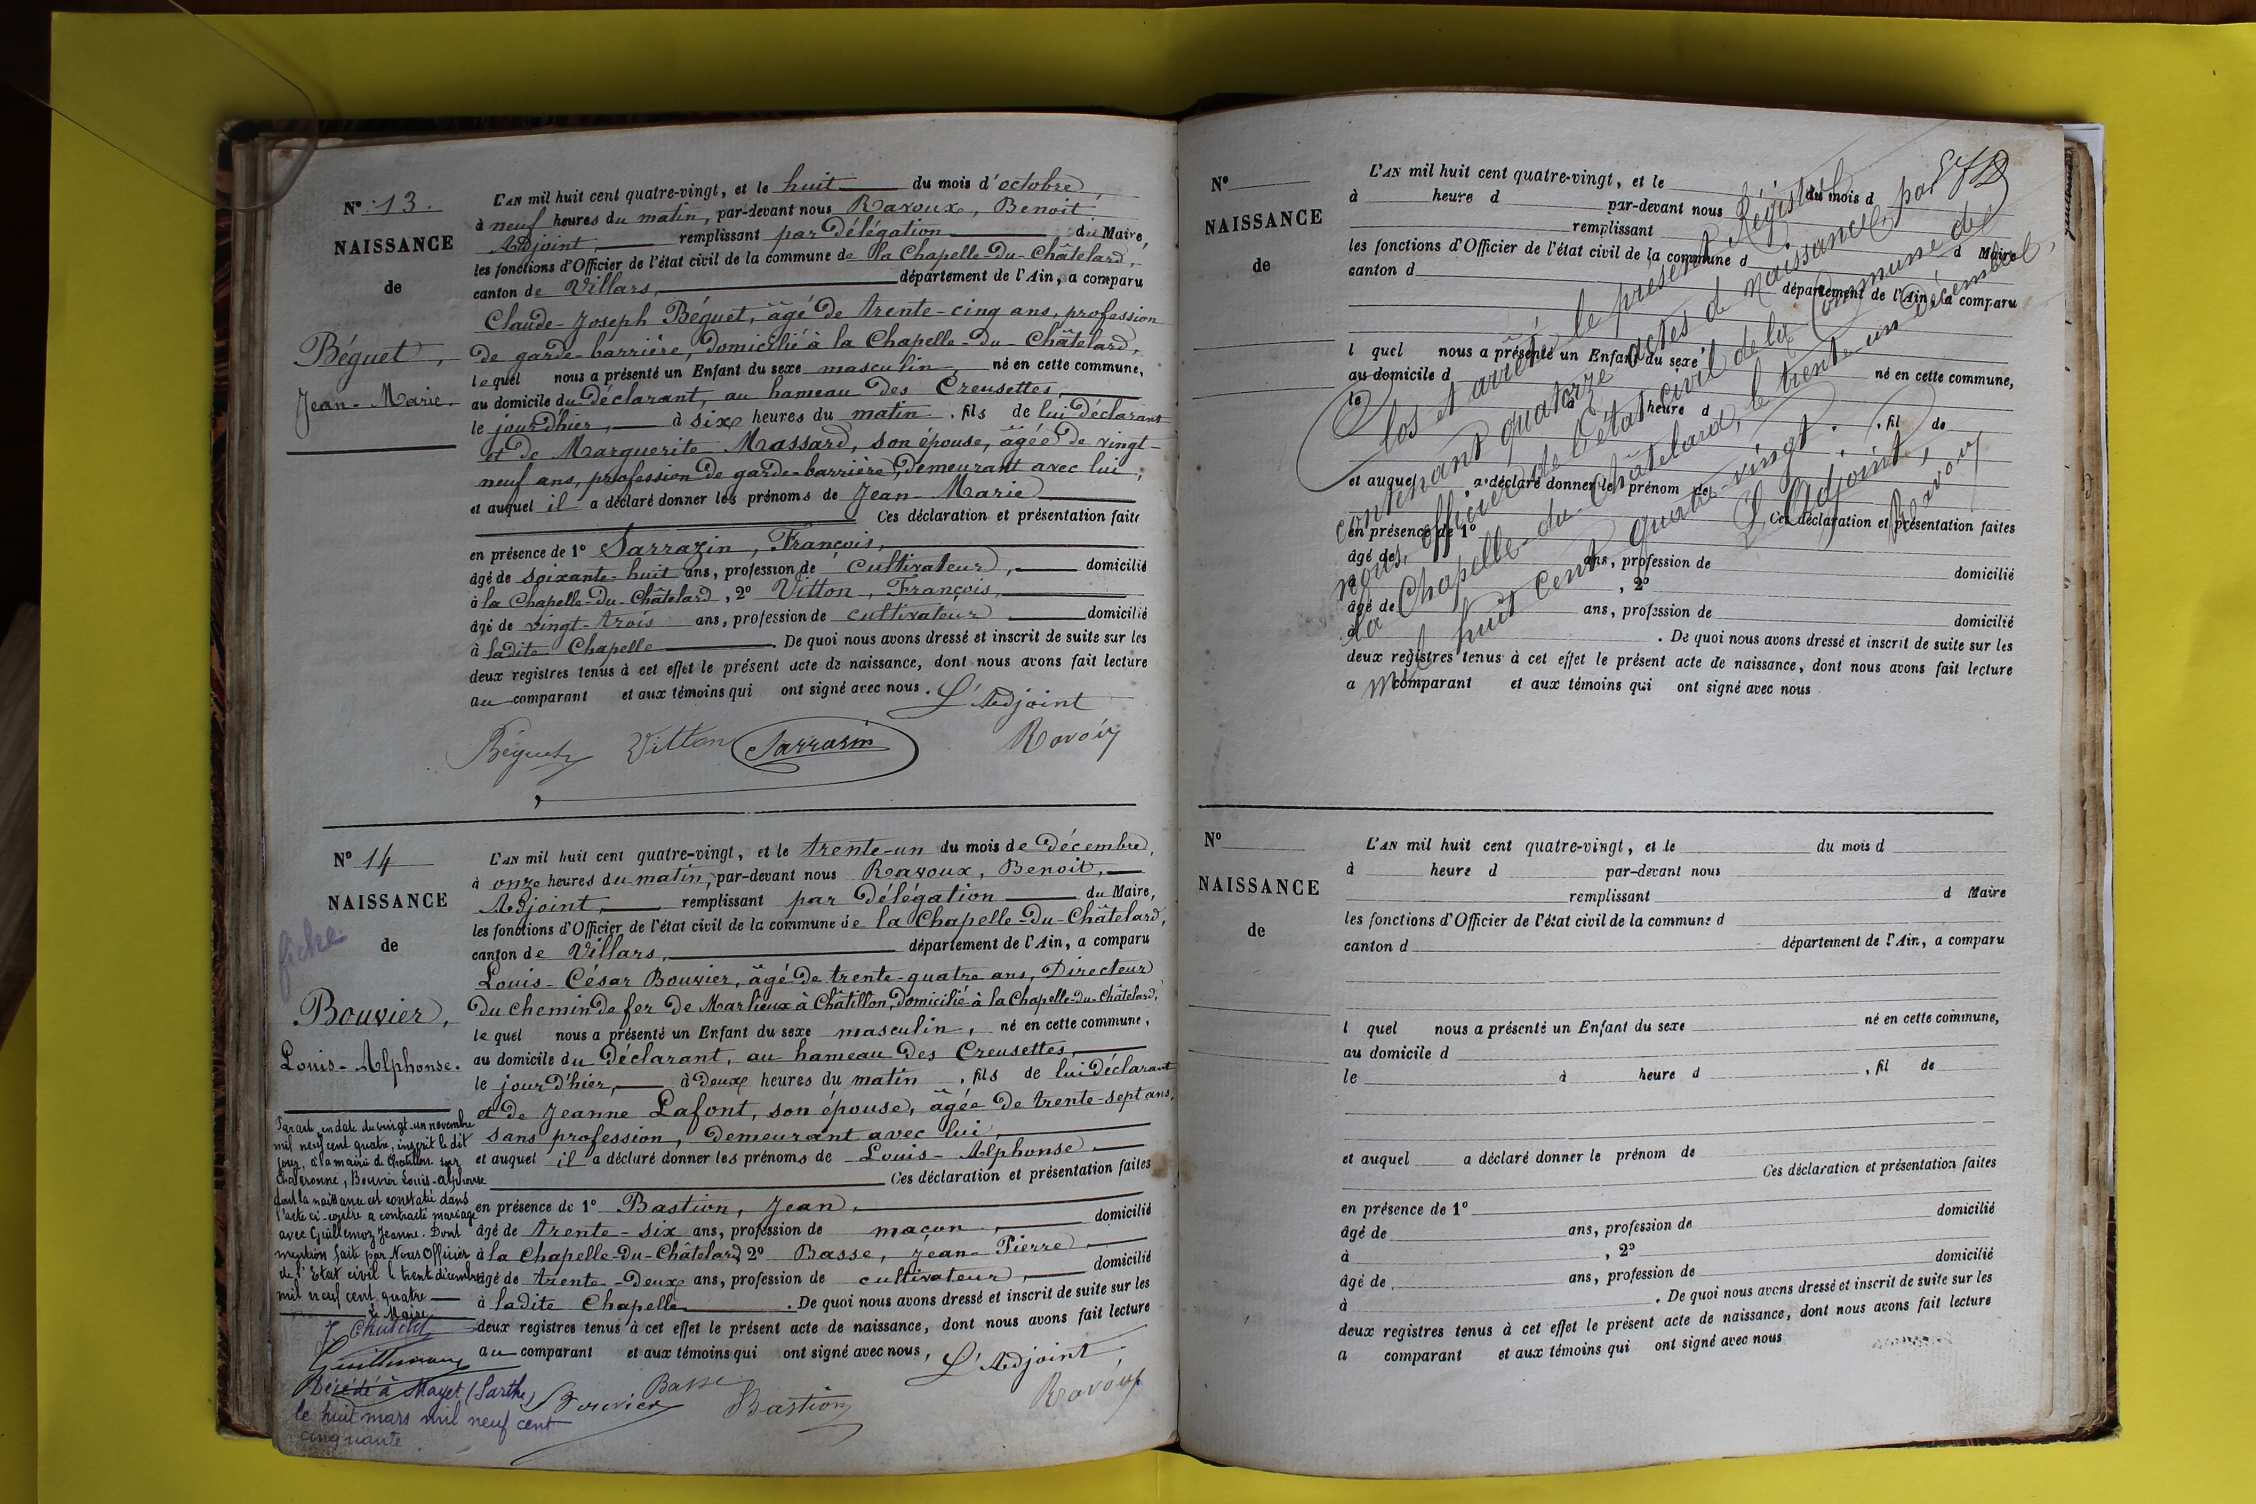 N° 13.
NAISSANCE
de
Béguet,
Jean-Marie.
L'AN mil huit cent quatre-vingt, et le huit du mois d'octobre,
à neuf heures du matin, par-devant nous Ravoux, Benoit,
Adjoint, remplissant par Délégation du Maire,
les fonctions d'Officier de l'état civil de la commune de la Chapelle-du-Châtelard,
canton de Villars, département de l'Ain, a comparu
Claude-Joseph Béguet, âgé de trente-cinq ans, profession
de garde-barrière, domicilié à la Chapelle-du-Châtelard,
lequel nous a présenté un Enfant du sexe masculin, né en cette commune,
au domicile du Déclarant, au hameau des Creusettes,
le jour d'hier, à six heures du matin, fils de lui déclarant
et de Marguerite Massard, son épouse, âgée de vingt-
neuf ans, profession de garde-barrière, demeurant avec lui;
et auquel il a déclaré donner les prénoms de Jean-Marie
Ces déclaration et présentation faites
en présence de 1° Sarrazin, François,
âgé de soixante-huit ans, profession de cultivateur, domicilié
à la Chapelle-du-Châtelard, 2° Vitton, François,
âgé de vingt-trois ans, profession de cultivateur domicilié
à ladite Chapelle. De quoi nous avons dressé et inscrit de suite sur les
deux registres tenus à cet effet le présent acte de naissance, dont nous avons fait lecture
au comparant et aux témoins qui ont signé avec nous. L'Adjoint
Béguet Vitton Sarrasin Ravoux
N° 14
NAISSANCE
de
fiche
Bouvier,
Louis-Alphonse.
L'AN mil huit cent quatre-vingt, et le trente-un du mois de Décembre,
à onze heures du matin, par-devant nous Ravoux, Benoit,
Adjoint, remplissant par Délégation du Maire,
les fonctions d'Officier de l'état civil de la commune de la Chapelle-du-Châtelard,
canton de Villars, département de l'Ain, a comparu
Louis-César Bouvier, âgé de trente-quatre ans, Directeur
du chemin de fer de Marlieux à Châtillon, domicilié à la Chapelle-du-Châtelard,
lequel nous a présenté un Enfant du sexe masculin, né en cette commune,
au domicile du Déclarant, au hameau des Creusettes,
le jour d'hier, à deux heures du matin, fils de lui déclarant
et de Jeanne Lafont, son épouse, âgée de trente-sept ans,
sans profession, demeurant avec lui,
et auquel il a déclaré donner les prénoms de Louis-Alphonse
Ces déclaration et présentation faites
en présence de 1° Bastion, Jean,
âgé de trente-six ans, profession de maçon, domicilié
à la Chapelle-du-Châtelard, 2° Basse, Jean-Pierre
âgé de trente-deux ans, profession de cultivateur, domicilié
à ladite Chapelle. De quoi nous avons dressé et inscrit de suite sur les
deux registres tenus à cet effet le présent acte de naissance, dont nous avons fait lecture
au comparant et aux témoins qui ont signé avec nous, L'Adjoint
Bouvier Basse Bastion Ravoux
Par acte en date du vingt-un novembre
mil neuf cent quatre, inscrit le dit
jour, à la mairie de Chatillon sur
Chalaronne, Bouvier Louis-Alphonse
dont la naissance est constatée dans
l'acte ci-contre a contracté mariage
avec Guillemoz Jeanne. Dont
mention faite par Nous Officier
de l'Etat civil le trente décembre
mil neuf cent quatre
Le Maire
Décédé à Mayet (Sarthe)
le huit mars mil neuf cent
cinquante.
N°
NAISSANCE
de
L'AN mil huit cent quatre-vingt, et le du mois d
à heure d par-devant nous
remplissant d Maire
les fonctions d'Officier de l'état civil de la commune d
canton d département de l'Ain, a comparu
l quel nous a présenté un Enfant du sexe né en cette commune,
au domicile d
le à heure d , fil de
et auquel a déclaré donner le prénom de
Ces déclaration et présentation faites
en présence de 1°
âgé de ans, profession de domicilié
à , 2°
âgé de ans, profession de domicilié
à . De quoi nous avons dressé et inscrit de suite sur les
deux registres tenus à cet effet le présent acte de naissance, dont nous avons fait lecture
a comparant et aux témoins qui ont signé avec nous
Clos et arrêté le présent Régistre
contenant quatorze actes de naissance, par
nous, officier de l'état civil de la Commune de
la Chapelle-du-Châtelard, le trente-un Décembre
mil huit cent quatre-vingt.
L'Adjoint,
Ravoux
N°
NAISSANCE
de
L'AN mil huit cent quatre-vingt, et le du mois d
à heure d par-devant nous
remplissant d Maire
les fonctions d'Officier de l'état civil de la commune d
canton d département de l'Ain, a comparu
l quel nous a présenté un Enfant du sexe né en cette commune,
au domicile d
le à heure d , fil de
et auquel a déclaré donner le prénom de
Ces déclaration et présentation faites
en présence de 1°
âgé de ans, profession de domicilié
à , 2°
âgé de ans, profession de domicilié
à . De quoi nous avons dressé et inscrit de suite sur les
deux registres tenus à cet effet le présent acte de naissance, dont nous avons fait lecture
a comparant et aux témoins qui ont signé avec nous